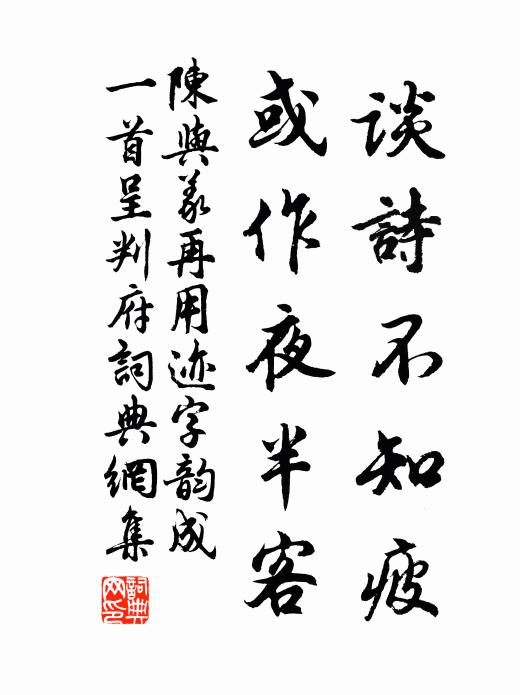 谈詩不知疲
或作夜半客
陳與義再用迹字韵成
一首呈判府詞典網集
詞典网印